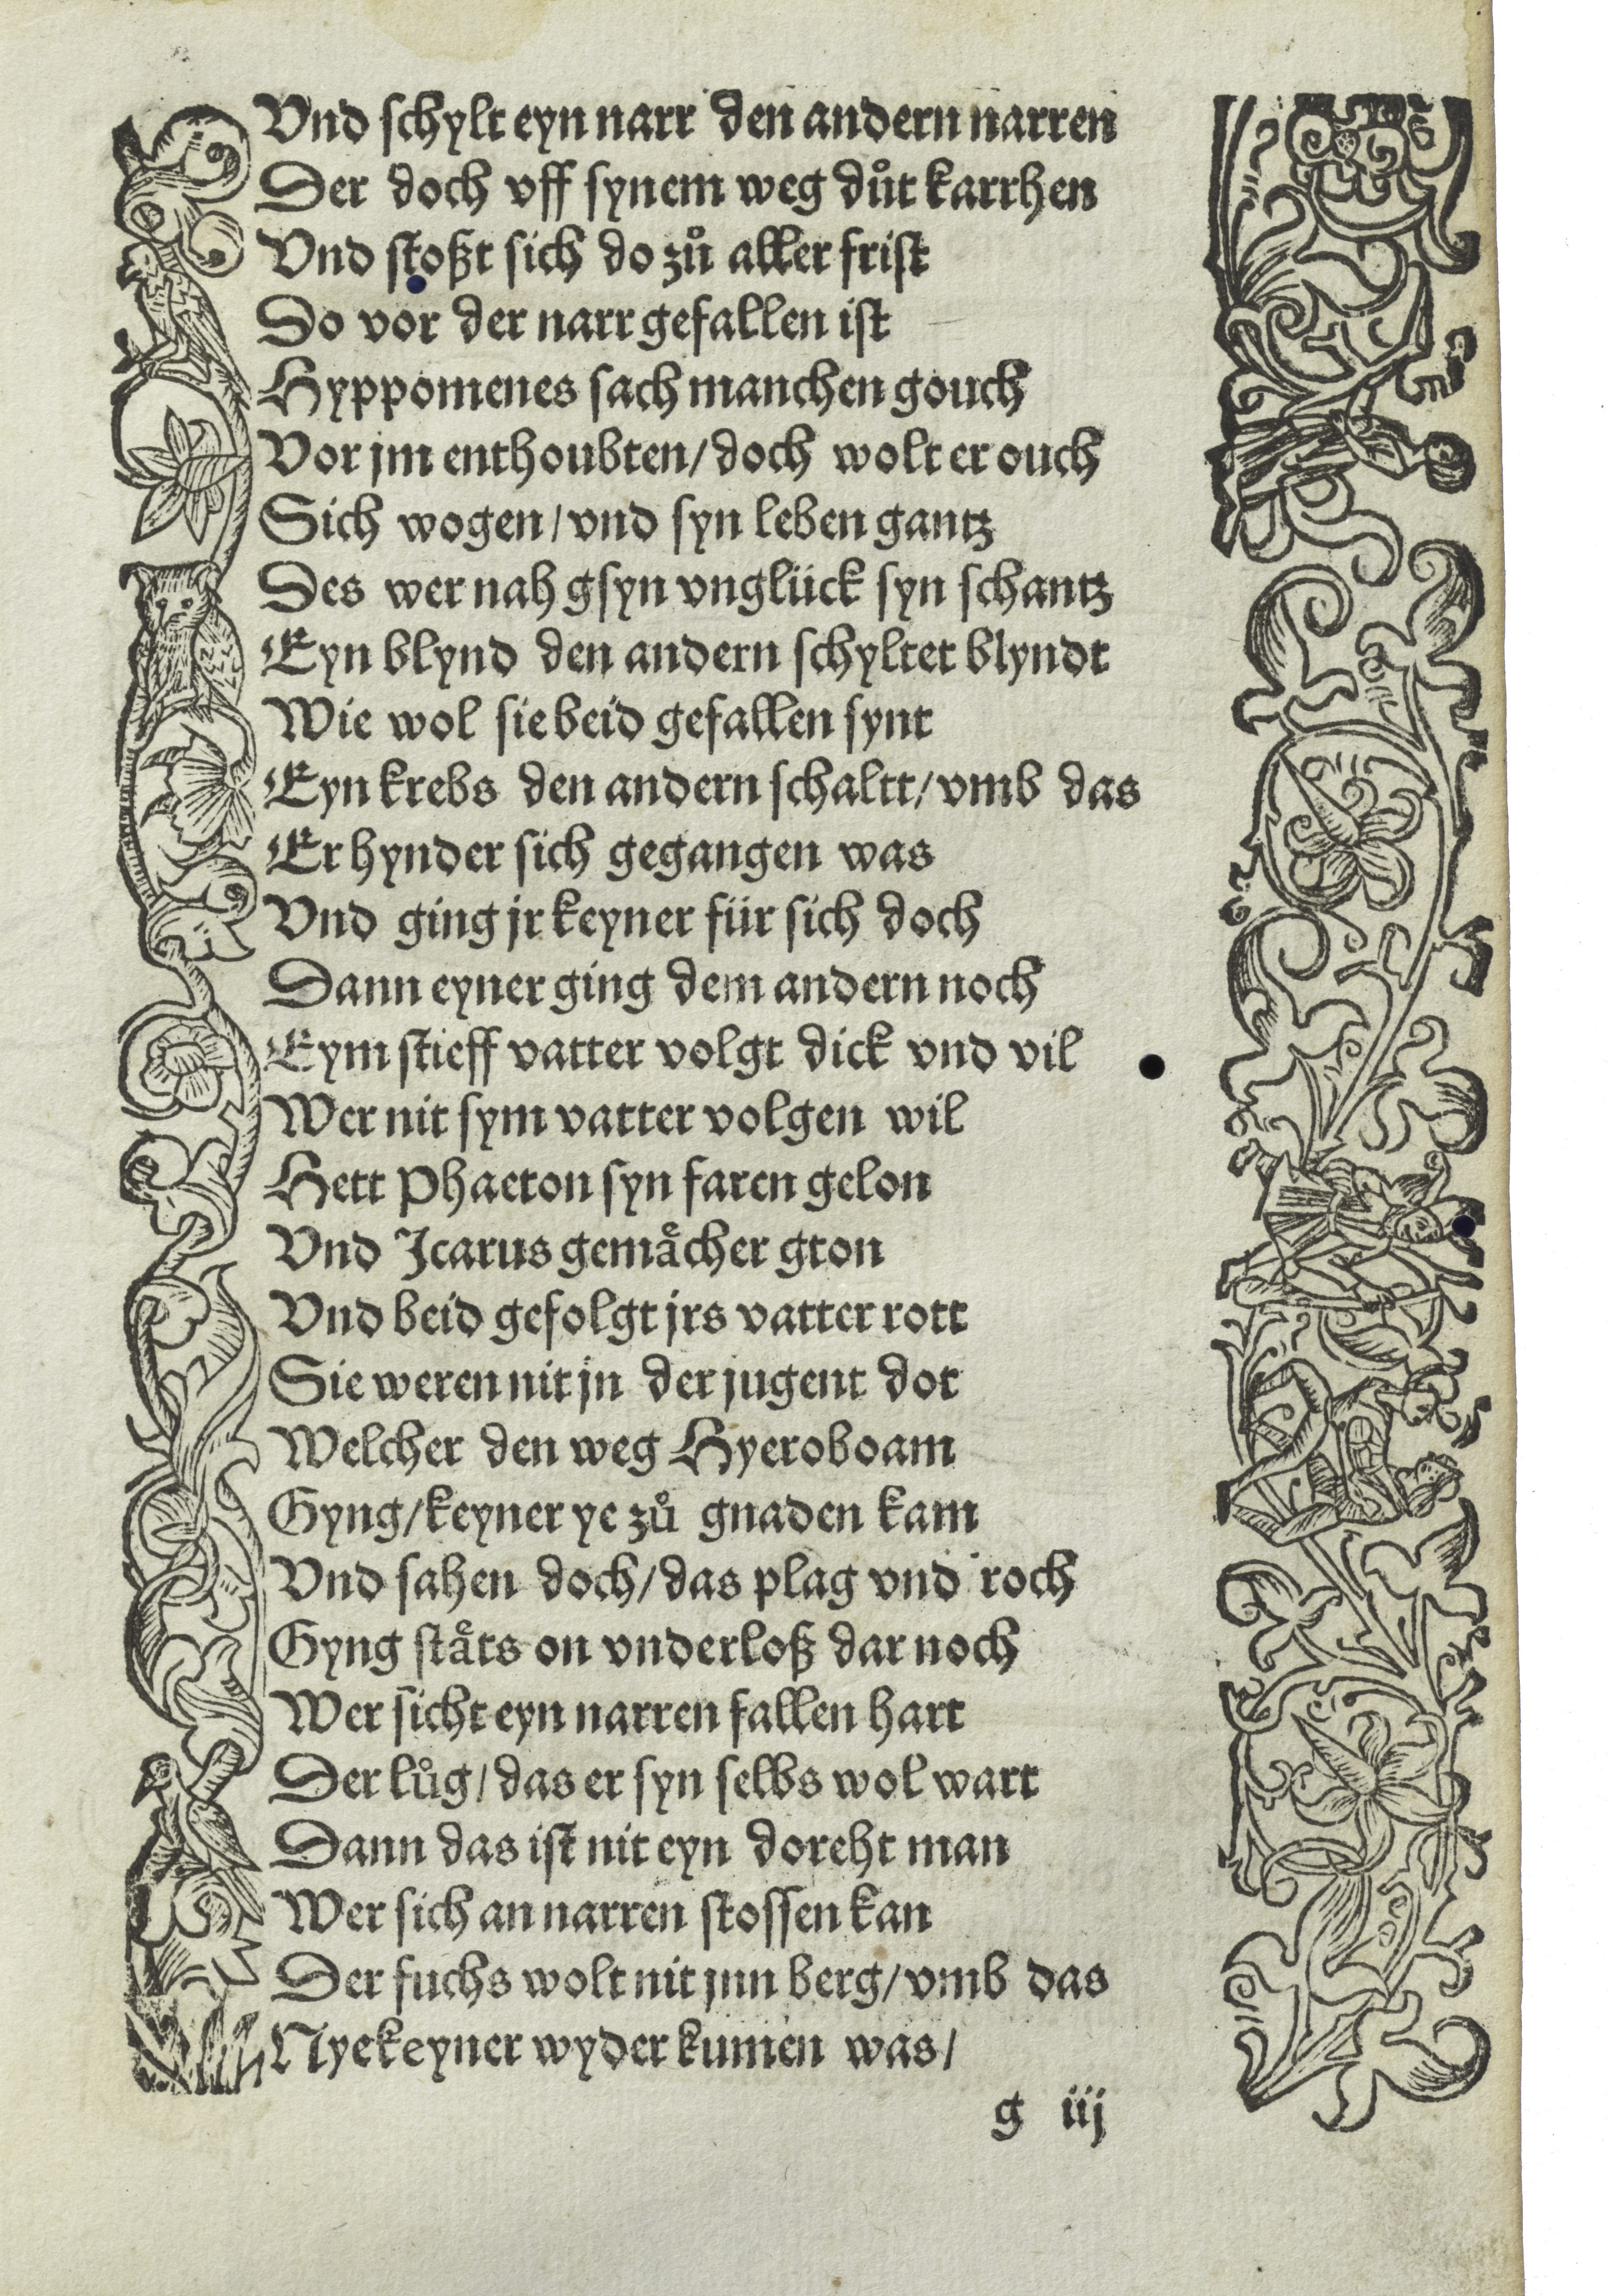 Vnd schylt eyn narr den andern narren
Der doch vff synem weg důt karrhen
Vnd stoßt sich do zů aller frist
Do vor der narr gefallen ist
Hyppomenes sach manchen gouch
Vor jm enthoubten/ doch wolt er ouch
Sich wogen/ vnd syn leben gantz
Des wer nah gsyn vnglück syn schantz
Eyn blynd den andern schyltet blyndt
Wie wol sie beid gefallen synt
Eyn krebs den andern schaltt/ vmb das
Er hynder sich gegangen was
Vnd ging jr keyner für sich doch
Dann eyner ging dem andern noch
Eym stieff vatter volgt dick vnd vil
Wer nit sym vatter volgen wil
Hett Phaeton syn faren gelon
Vnd Icarus gemaͤcher gton
Vnd beid gefolgt jrs vatter rott
Sie weren nit jn der jugent dot
Welcher den weg Hyeroboam
Gyng/ keyner ye zů gnaden kam
Vnd sahen doch/ das plag vnd roch
Gyng staͤts on vnderloß dar noch
Wer sicht eyn narren fallen hart
Der lůg/ das er syn selbs wol wart
Dann das ist nit eyn doreht man
Wer sich an narren stossen kan
Der fuchs wolt nit jnn berg/ vmb das
Nye keyner wyder kumen was/
g iij